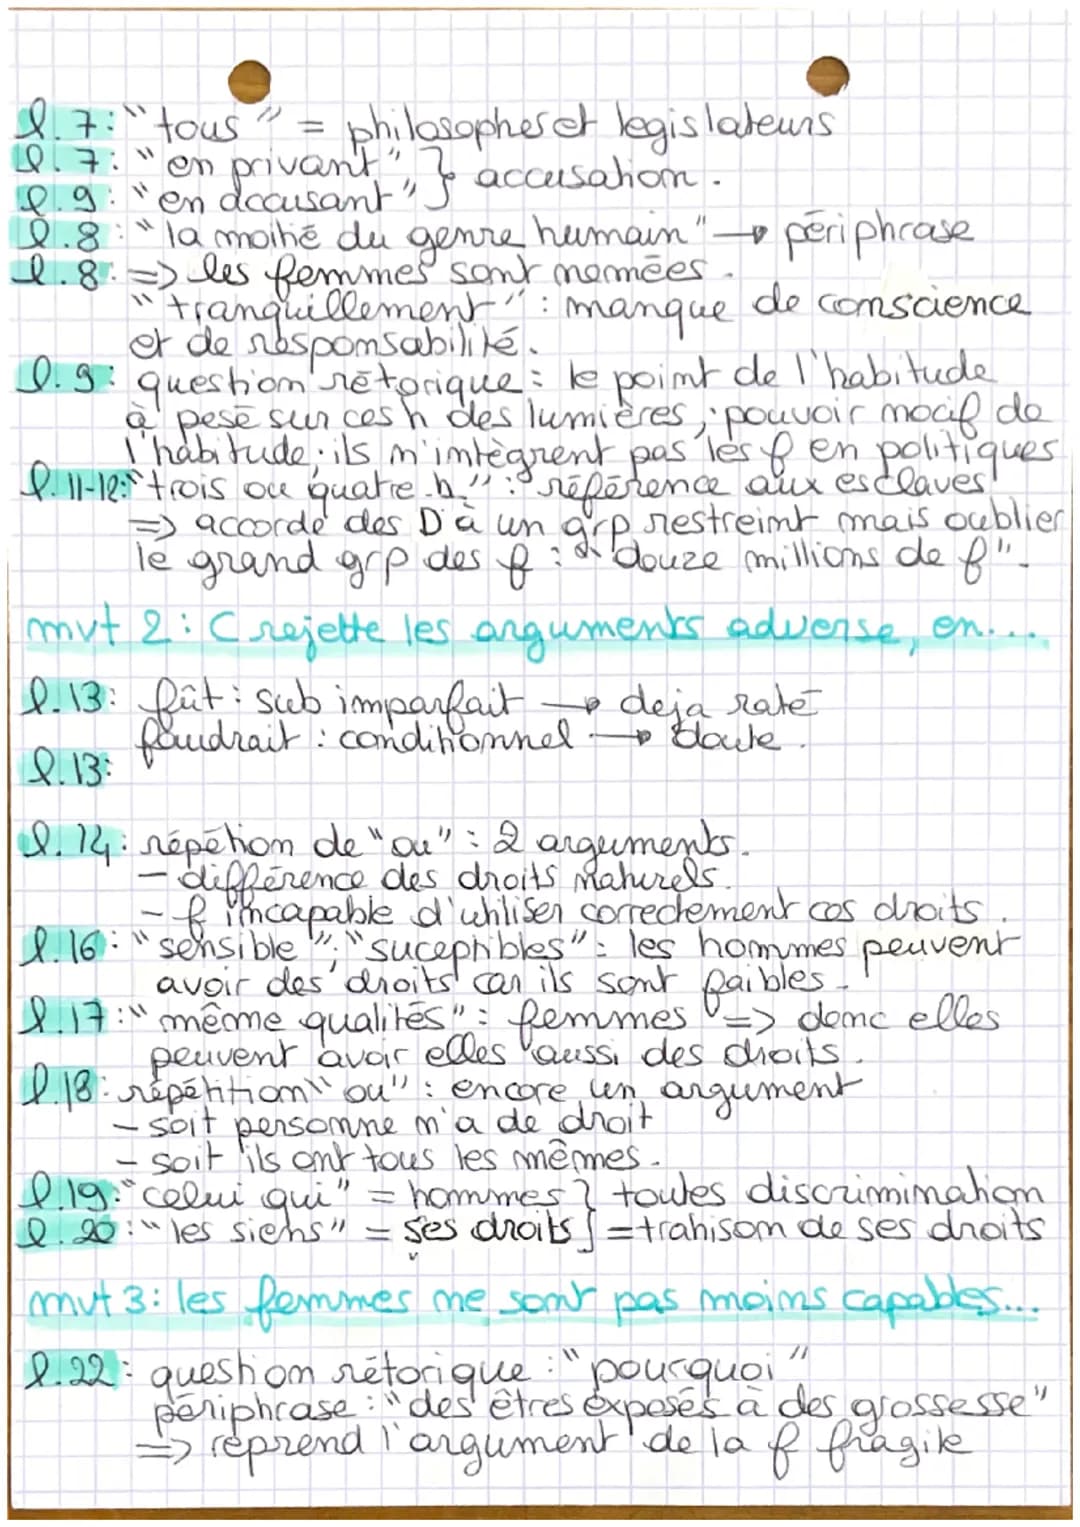 l.7: "tous" = philosophes et legislateurs
l.7: "en privant" } accusation.
l.9: "en accusant"
l.8: "la moitié du genre humain" → périphrase
l.8: => les femmes sont nommées.
"tranquillement": manque de conscience
et de résponsabilité.
l.9: question rétorique: le point de l'habitude
à pesé sur ces h des lumières; pouvoir nocif de
l'habitude; ils n'intègrent pas les f en politiques
l.11-12: "trois ou quatre h": référence aux esclaves
=> accorde des D à un grp restreint mais oublier
le grand grp des f: "douze millions de f".
mvt 2: C rejette les arguments adverse, en...
l.13: fût: sub imparfait → deja raté
faudrait: conditionnel → doute.
l.13:
l.14: répétion de "ou": 2 arguments.
- différence des droits naturels.
- f incapable d'utiliser correctement cos droits.
l.16: "sensible"; "suceptibles": les hommes peuvent
avoir des droits car ils sont faibles.
l.17: "même qualités": femmes => donc elles
peuvent avoir elles aussi des droits.
l.18: répétition "ou": encore un argument
- soit personne n'a de droit
- soit ils ont tous les mêmes.
l.19: "celui qui" = hommes } toutes discrimination
l.20: "les siens" = ses droits } = trahison de ses droits
mvt 3: les femmes ne sont pas moins capables...
l.22: question rétorique: "pourquoi"
périphrase: "des êtres exposés à des grossesse"
=> réprend l'argument de la f fragile